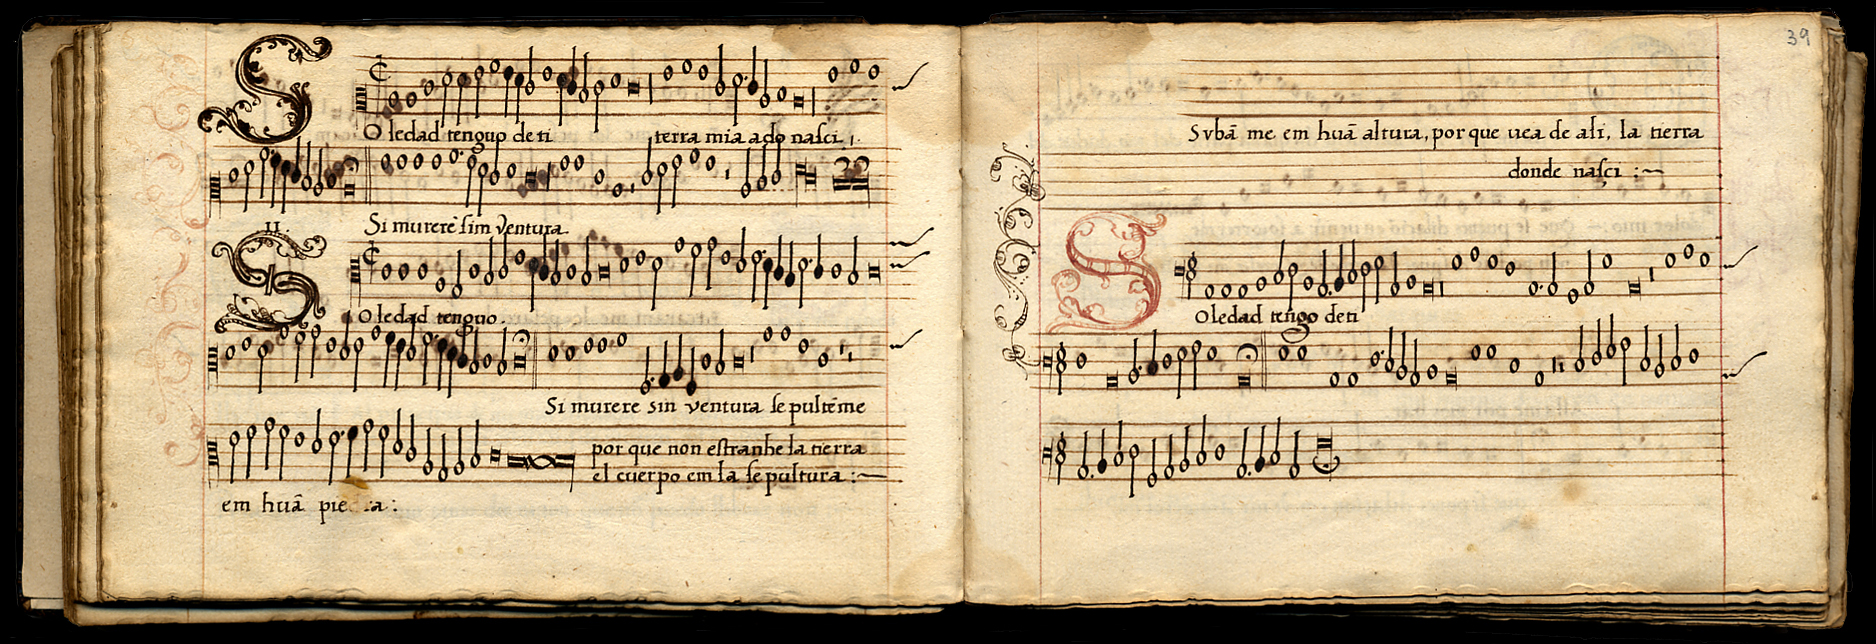 SOledad tenguo de ti terra mia a do nasci
Si murerē sim ventura
II.
SOledad tenguo.
Si murere sin ventura se pultēme
por que non estranhe la tierra
el cuerpo em la sepultura :~
em huā pie a :
39
Svbā me em huā altura, por que vea de ali, la tierra
donde nasci :~
SOledad tengo de ti